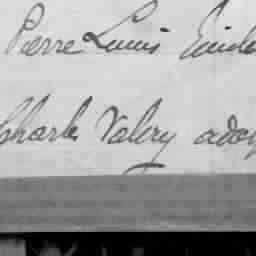 Pierre Louis
Charle Valery